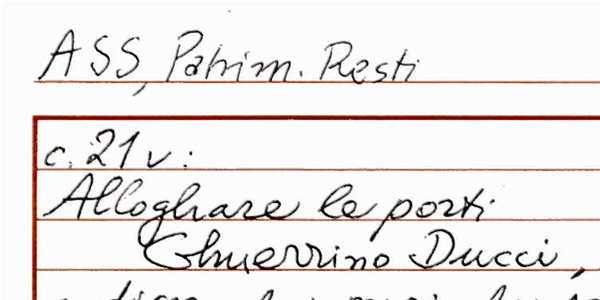 ASS, Patrim. Resti
c. 21 v:
Alloghare le porti
Ghuerrino Ducci,